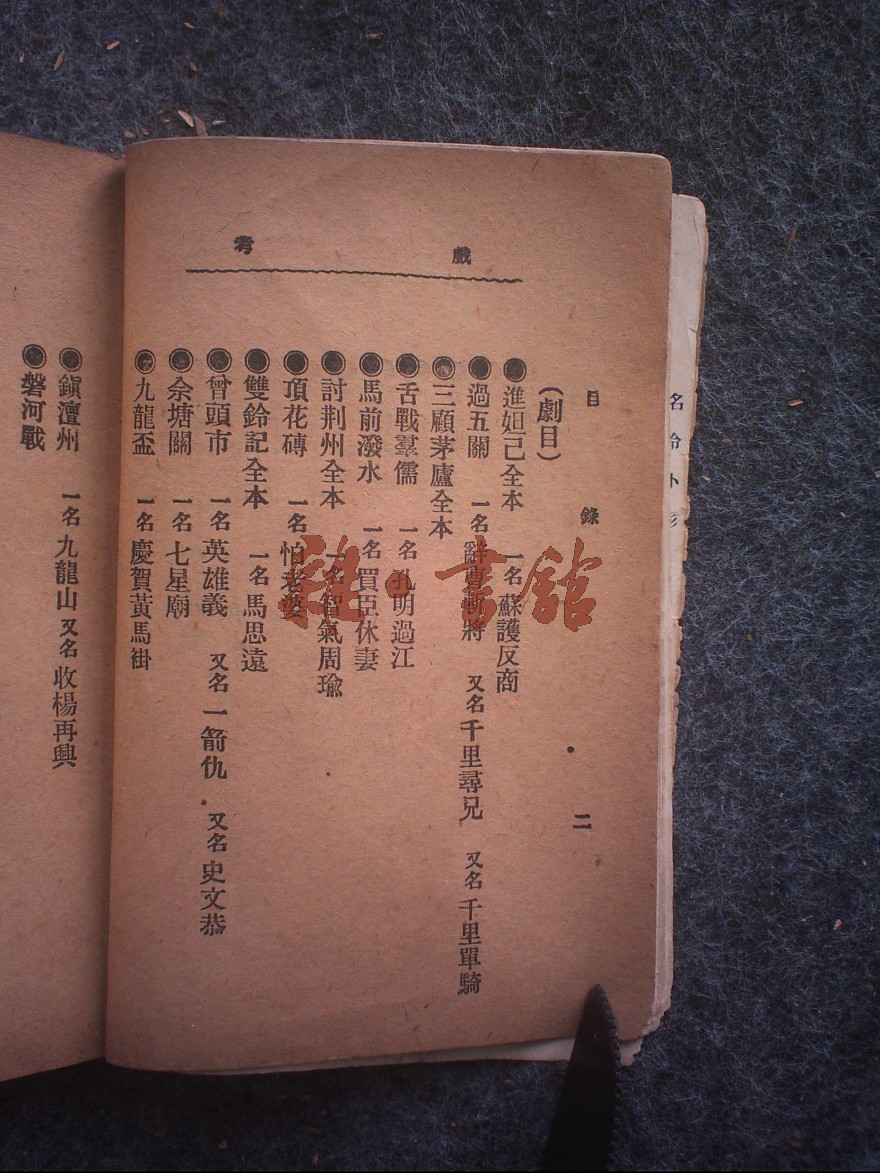 戲考
目錄 二
(劇目)
◉進妲己全本 一名蘇護反商
◉過五關 一名辭曹斬將 又名千里尋兄 又名千里單騎
◉三顧茅廬全本
◉舌戰羣儒 一名孔明過江
◉馬前潑水 一名買臣休妻
◉討荆州全本 一名智氣周瑜
◉頂花磚 一名怕老婆
◉雙鈴記全本 一名馬思遠
◉曾頭市 一名英雄義 又名一箭仇 又名史文恭
◉佘塘關 一名七星廟
◉九龍盃 一名慶賀黃馬褂
◉鎭澶州 一名九龍山 又名收楊再興
◉磐河戰
名伶小影
雜·書館